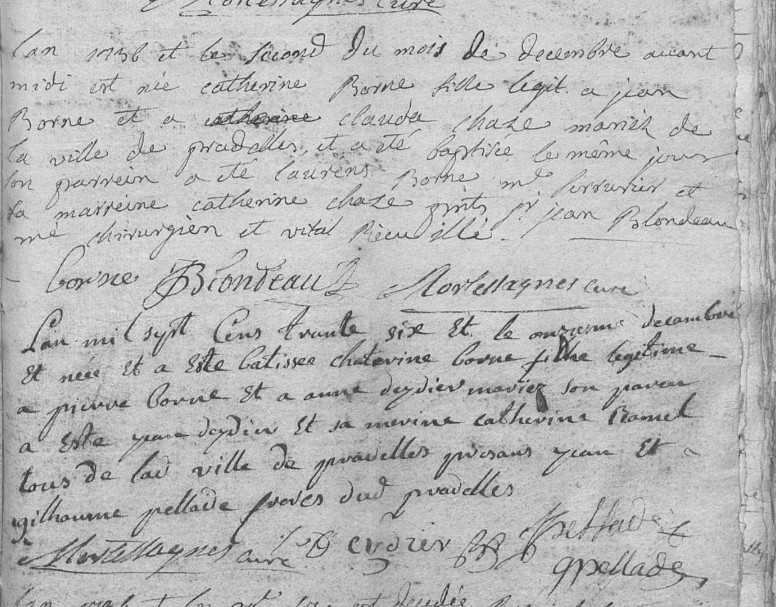 Mortessagnes curé
lan 1736 et le second du mois de decembre avant
midi est née catherine Borne fille legit. a jean
Borne et a catherine clauda chaze mariez de
la ville de pradelles, et a été baptisée le même jour
son parrein a été laurens Borne me serrurier et
la marreine catherine chaze pnts sr jean Blondeau
me chirurgien et vital Rieu
borne Blondeau Mortessagnes curé
Lan mil sept Cens trante six Et le onzieme decambre
Et neée et a Este batissee chaterine borne filhe legitime
a pierre borne Et a anne deydier mariez son paren
a Este jean deydier Et sa merine catherine
tous de lad ville de pradelles presans jean Et
gilhaume pellade freres dud pradelles
Mortessagnes curé Deydier pellade
gpellade
lan 1736 et le